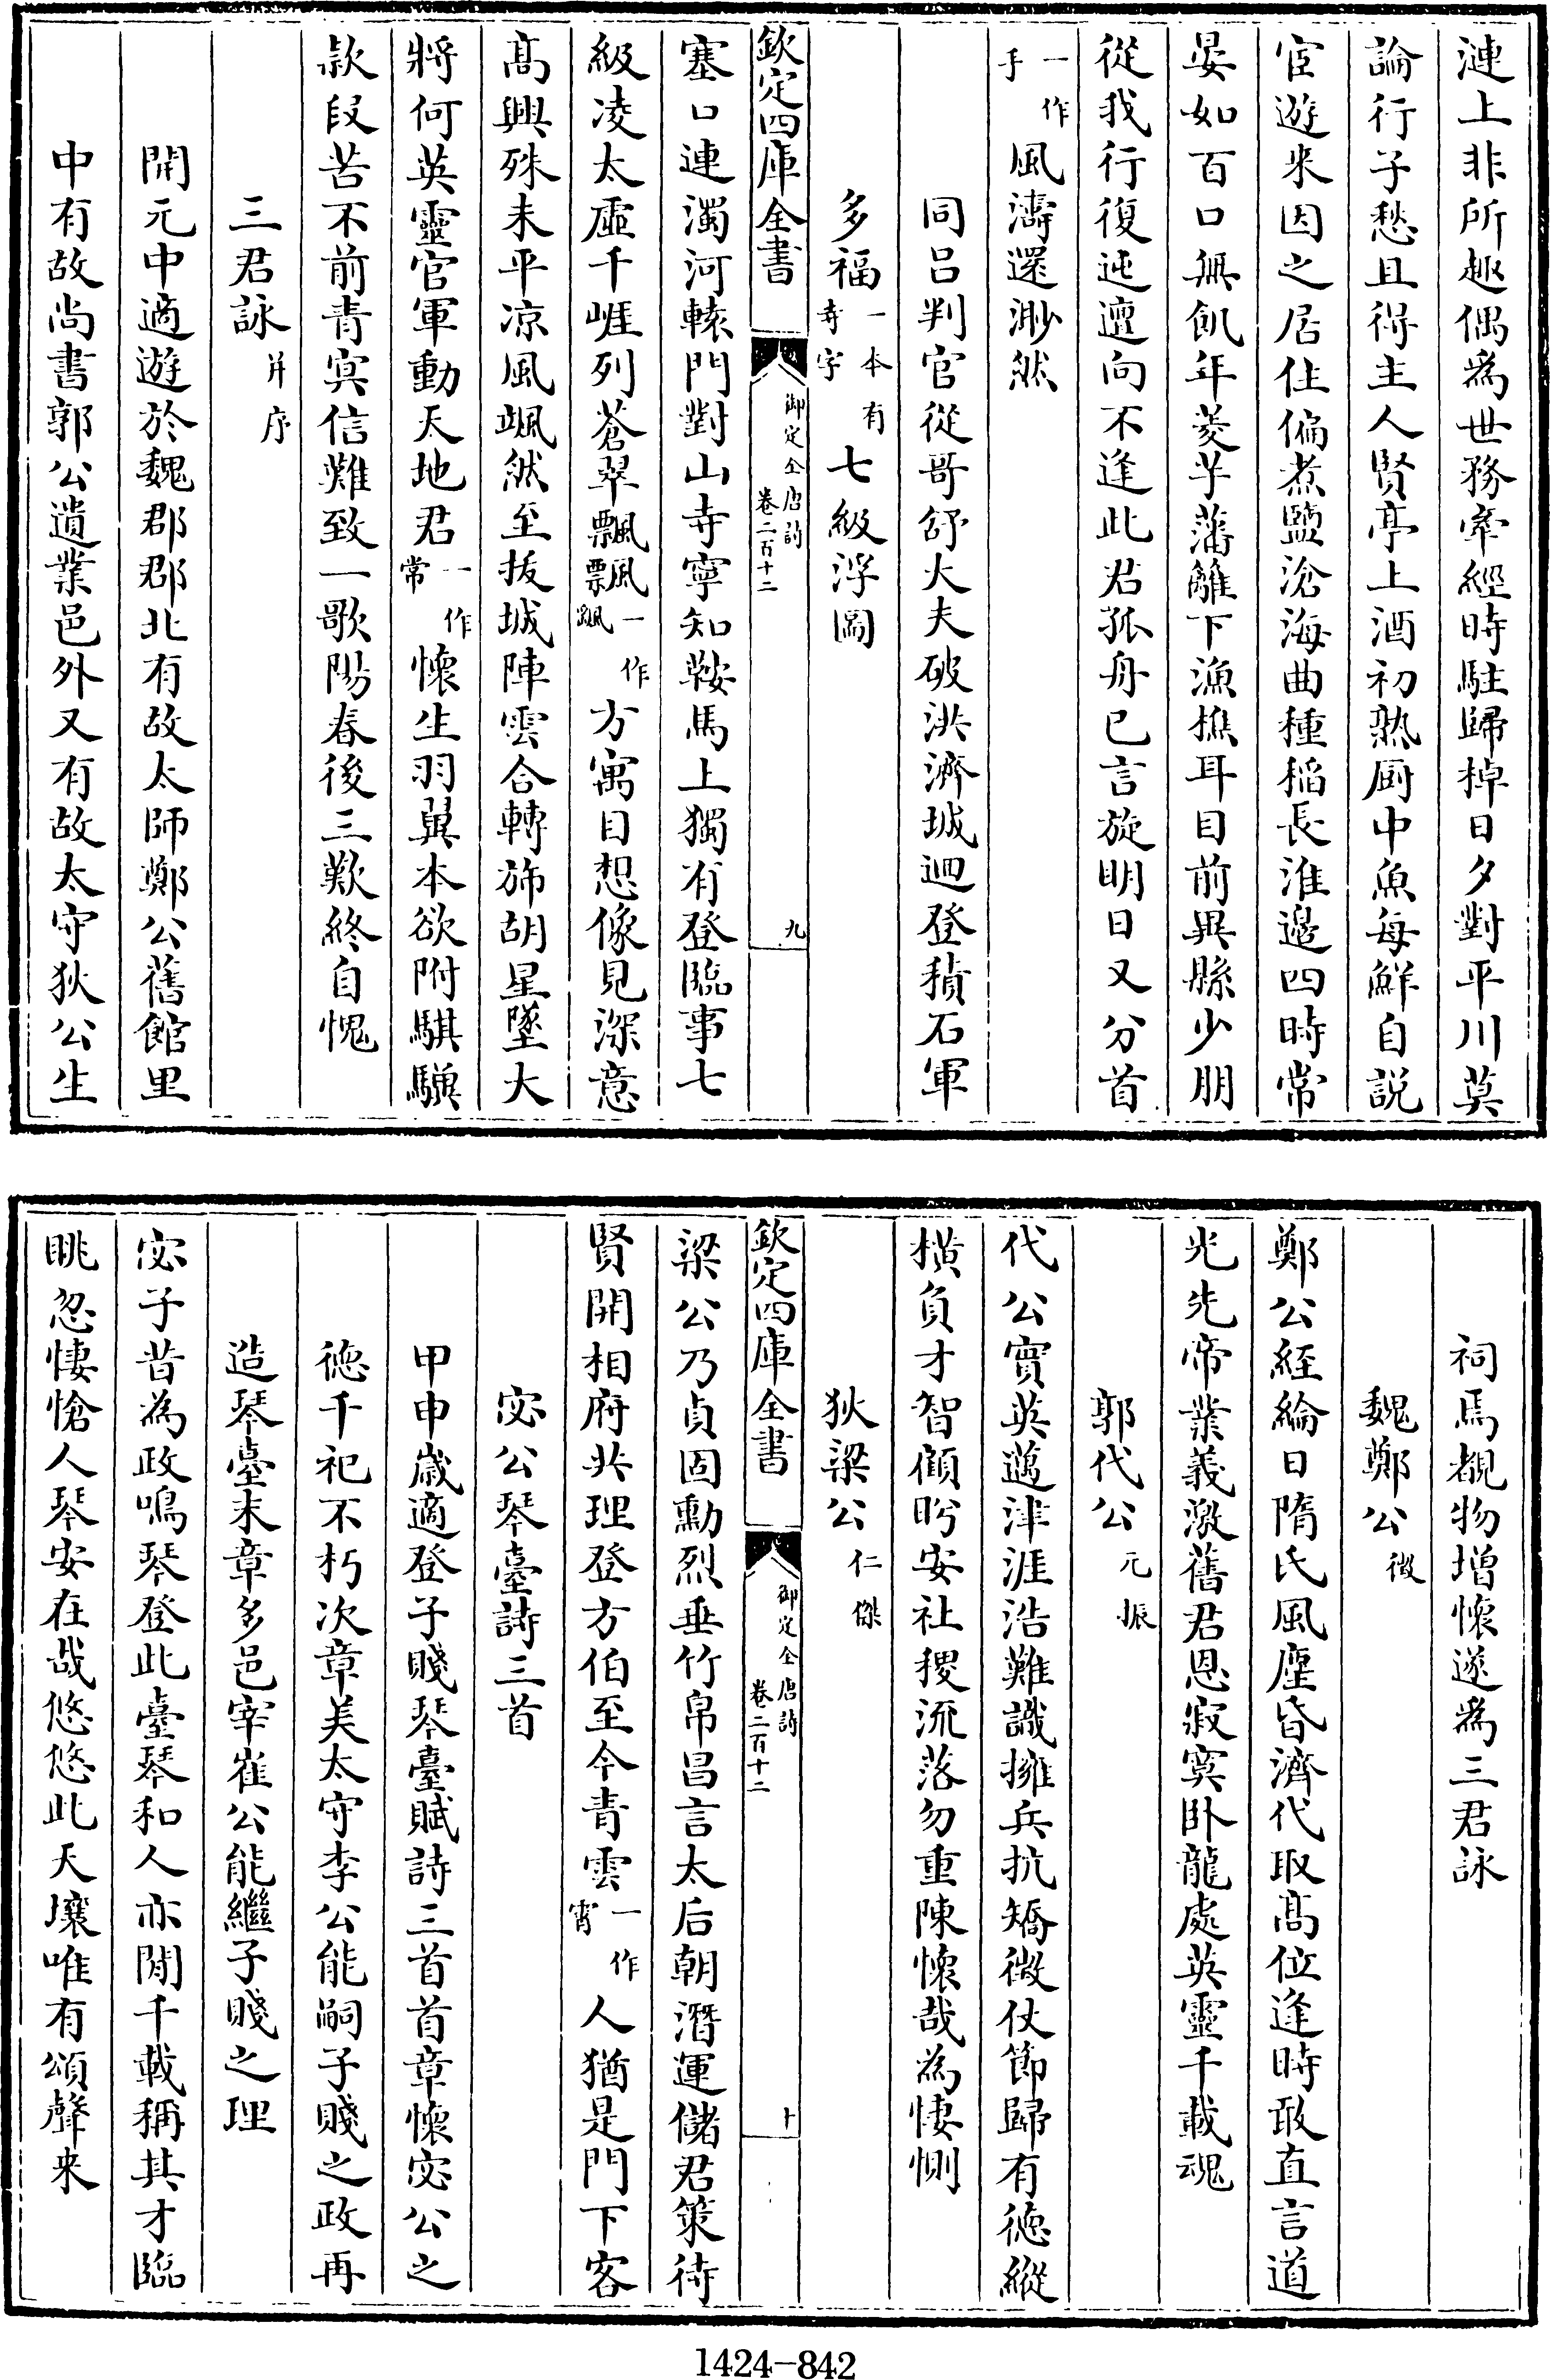 漣上非所趣偶為世務牽經時駐歸棹日夕對平川莫
論行子愁且得主人賢亭上酒初熟厨中魚每鮮自説
宦遊来因之居住偏煮鹽滄海曲種稻長淮邊四時常
晏如百口無飢年菱芋藩籬下漁樵耳目前異縣少朋
從我行復迍邅向不逢此君孤舟已言旋明日又分首
一作手風濤還渺然
同吕判官從哥舒大夫破洪濟城迴登積石軍
多福一本有寺字七級浮圖
欽定四庫全書
御定全唐詩
卷二百十二
九
塞口連濁河轅門對山寺寧知鞍馬上獨有登臨事七
級凌太虛千崕列蒼翠飄飄一作颯方寓目想像見深意
髙興殊未平凉風颯然至拔城陣雲合轉斾胡星墜大
將何英靈官軍動天地君一作常懷生羽翼本欲附騏驥
款段苦不前青冥信難致一歌陽春後三歎終自愧
三君詠并序
開元中適遊於魏郡郡北有故太師鄭公舊館里
中有故尚書郭公遺業邑外又有故太守狄公生
祠焉覩物增懷遂為三君詠
魏鄭公徵
鄭公經綸日隋氏風塵昏濟代取髙位逢時敢直言道
光先帝業義激舊君恩寂寞卧龍處英靈千載魂
郭代公元振
代公實英邁津涯浩難識擁兵抗矯徵仗節歸有徳縱
横負才智顧盻安社稷流落勿重陳懷哉為悽惻
狄梁公仁傑
欽定四庫全書
御定全唐詩
卷二百十二
十
梁公乃貞固勳烈垂竹帛昌言太后朝潛運儲君策待
賢開相府共理登方伯至今青雲一作霄人猶是門下客
宓公琴臺詩三首
甲申歲適登子賤琴臺賦詩三首首章懷宓公之
徳千祀不朽次章美太守李公能嗣子賤之政再
造琴臺末章多邑宰崔公能繼子賤之理
宓子昔為政鳴琴登此臺琴和人亦閒千載稱其才臨
眺忽悽愴人琴安在哉悠悠此天壤唯有頌聲来
1424-842